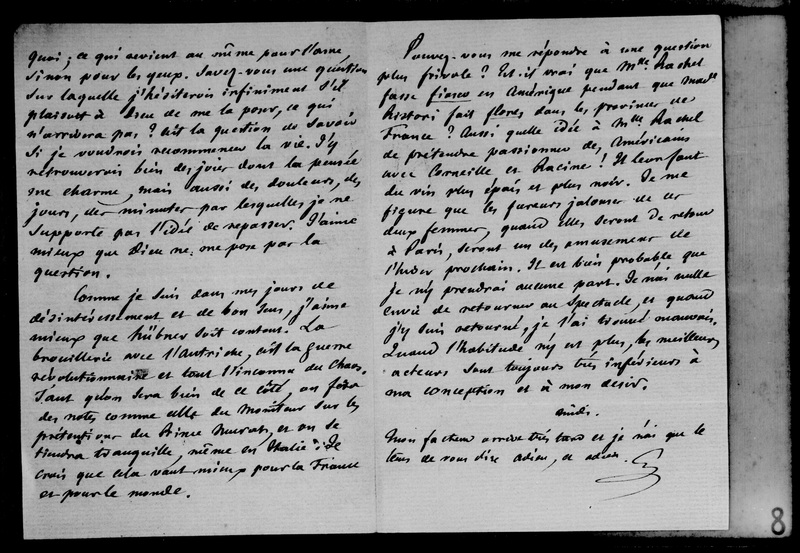 quoi; ce qui revient au même pour l'ame,
sinon pour les yeux. Savez-vous une question
sur laquelle j'hésiterois infiniment s'il
plaisoit à Dieu de me la poser, ce qui
n'arrivera pas? C'est la question de savoir
si je voudrois recommencer la vie. J'y
retrouverois bien des joies dont la pensée
me charme, mais aussi des douleurs, des
jours, des minutes par lesquelles je ne
supporte pas l'idée de repasser. J'aime
mieux que Dieu ne me pose pas la
question.
Comme je suis dans mes jours de
désintéressement et de bon sens, j'aime
mieux que Hübner soit content. La
brouillerie avec l'Autriche, c'est la guerre
révolutionnaire et tout l'inconnu du Chaos.
Tant qu'on sera bien de ce côté, on fera
des notes comme celle du Moniteur sur les
prétentions du Prince Murat, et on se
tiendra tranquille, même en Italie. Je
crois que cela vaut mieux pour la France
et pour le monde.
Pouvez-vous me répondre à une question
plus frivole? Est-il vrai que Mlle Rachel
fasse fiasco en Amérique pendant que Made
Ristori fait flores dans les provinces de
France? Aussi quelle idée à Mlle Rachel
de prétendre passionner des Américains
avec Corneille et Racine! Il leur faut
du vin plus épais et plus noir. Je me
figure que les fureurs jalouses de ces
deux femmes, quand elles seront de retour
à Paris, seront un des amusemens de
l'hiver prochain. Il est bien probable que
je n'y prendrai aucune part. Je n'ai nulle
envie de retourner au Spectacle, et quand
j'y suis retourné, je l'ai trouvé mauvais.
Quand l'habitude n'y est plus, les meilleurs
acteurs sont toujours très inférieurs à
ma conception et à mon desir.
midi.
Mon facteur arrive très tard et je n'ai que le
tems de vous dire adieu, et adieu. G
8